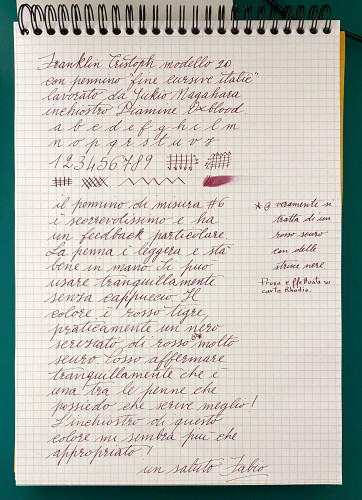 Franklin Cristoph modello 20
con pennino "fine cursive italic"
lavorato da Yukio Nagahara
inchiostro Diamine Oxblood.
a b c d e f g h i l m
n o p q r s t u v z
1 2 3 4 5 6 7 8 9
il pennino di misura #6
è scorrevolissimo e ha
un feedback particolare.
La penna è leggera e sta
bene in mano. Si può
usare tranquillamente
senza cappuccio. Il
colore è rosso tigre,
praticamente un nero
screziato di rosso molto
scuro. Posso affermare
tranquillamente che è
una tra le penne che
possiedo che scrive meglio!
L'inchiostro di questo
colore mi sembra più che
appropriato!
un saluto Fabio
veramente si
tratta di un
rosso scuro
con delle
strine nere.
Prova effettuata su
carta Rhodia.